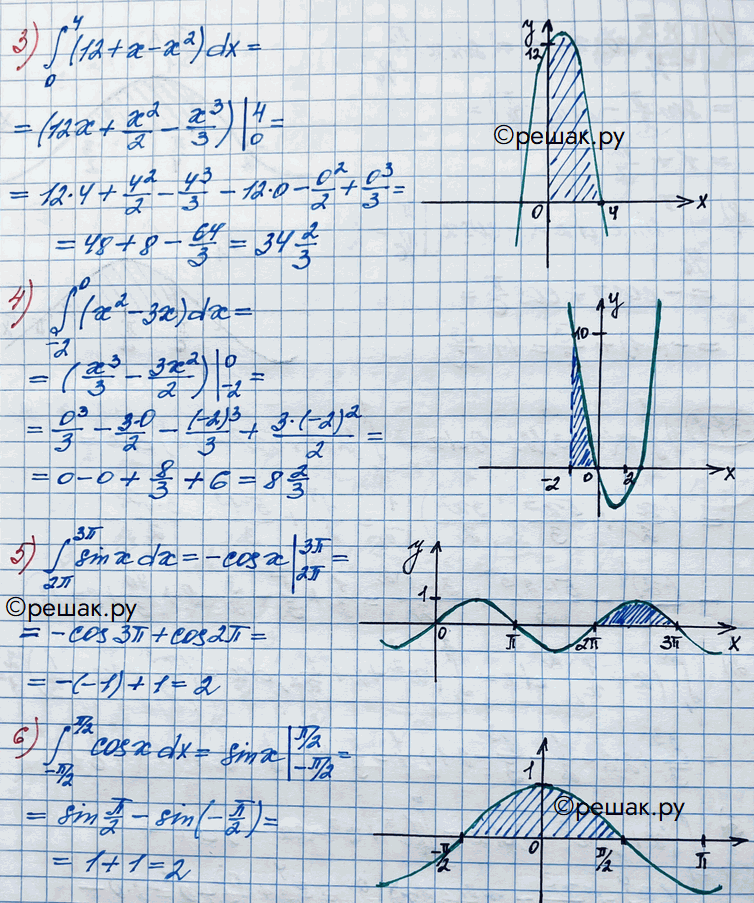 3) ∫₀⁴ (12 + x − x²) dx =
= (12x + x²/2 − x³/3) |₀⁴ =
= 12·4 + 4²/2 − 4³/3 − 12·0 − 0²/2 + 0³/3 =
= 48 + 8 − 64/3 = 34 2/3
y
12
©решак.ру
0 4 x
4) ∫₋₂⁰ (x² − 3x) dx =
= (x³/3 − 3x²/2) |₋₂⁰ =
= 0³/3 − 3·0/2 − (−2)³/3 + 3·(−2)²/2 =
= 0 − 0 + 8/3 + 6 = 8 2/3
y
10
−2 0 2 x
5) ∫_{2π}^{3π} sin x dx = −cos x |_{2π}^{3π} =
©решак.ру
= −cos 3π + cos 2π =
= −(−1) + 1 = 2
y
1
0 π 2π 3π x
6) ∫_{−π/2}^{π/2} cos x dx = sin x |_{−π/2}^{π/2} =
= sin π/2 − sin(−π/2) =
= 1 + 1 = 2
1
©решак.ру
−π/2 0 π/2 π